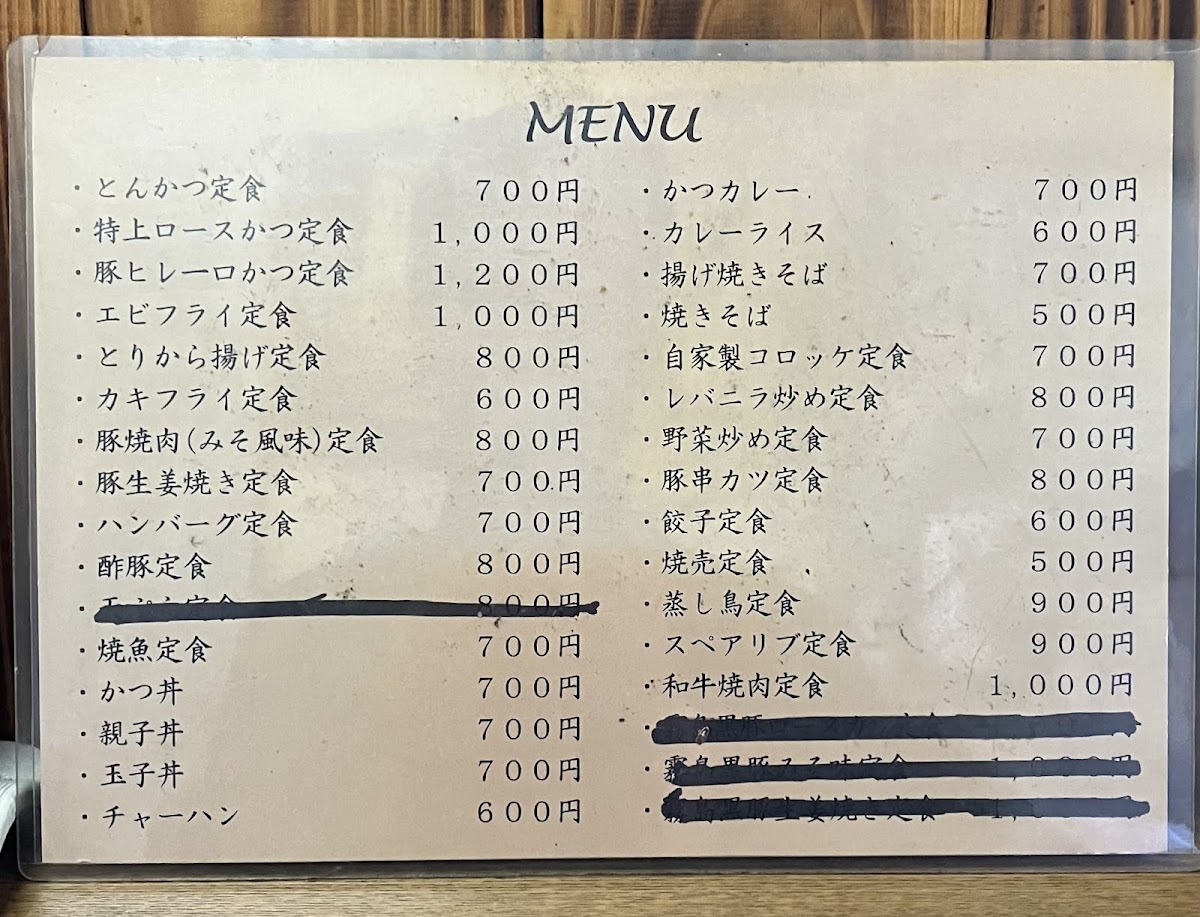 MENU
・とんかつ定食 700円
・特上ロースかつ定食 1,000円
・豚ヒレ一口かつ定食 1,200円
・エビフライ定食 1,000円
・とりから揚げ定食 800円
・カキフライ定食 600円
・豚焼肉(みそ風味)定食 800円
・豚生姜焼き定食 700円
・ハンバーグ定食 700円
・酢豚定食 800円
・定食 800円
・焼魚定食 700円
・かつ丼 700円
・親子丼 700円
・玉子丼 700円
・チャーハン 600円
・かつカレー 700円
・カレーライス 600円
・揚げ焼きそば 700円
・焼きそば 500円
・自家製コロッケ定食 700円
・レバニラ炒め定食 800円
・野菜炒め定食 700円
・豚串カツ定食 800円
・餃子定食 600円
・焼売定食 500円
・蒸し鳥定食 900円
・スペアリブ定食 900円
・和牛焼肉定食 1,000円
・黒豚
・霧島黒豚みそ味定食
・霧島黒豚生姜焼き定食